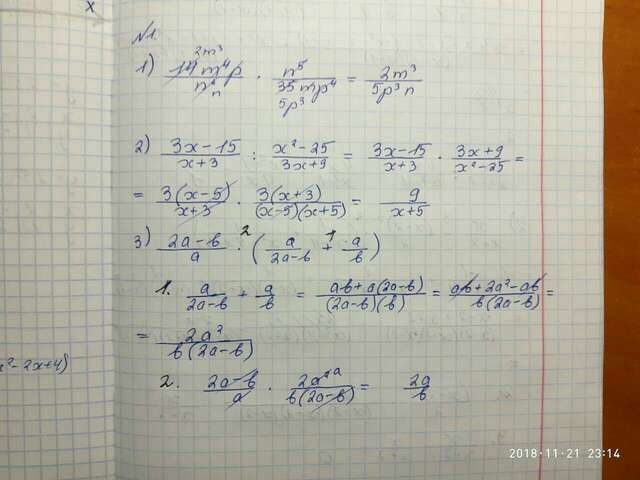 x
x²-2x+4)
№1.
1) 14m⁴p/n⁶ 2m³ n · n⁵/35mp⁴ 5p³ = 2m³/5p³n
2) 3x-15/x+3 : x²-25/3x+9 = 3x-15/x+3 · 3x+9/x²-25 =
= 3(x-5)/x+3 · 3(x+3)/(x-5)(x+5) = 9/x+5
3) 2a-b/a ·² (a/2a-b +¹ a/b)
1. a/2a-b + a/b = ab+a(2a-b)/(2a-b)(b) = ab+2a²-ab/b(2a-b) =
= 2a²/b(2a-b)
2. 2a-b/a · 2a² a/b(2a-b) = 2a/b
2018-11-21 23:14